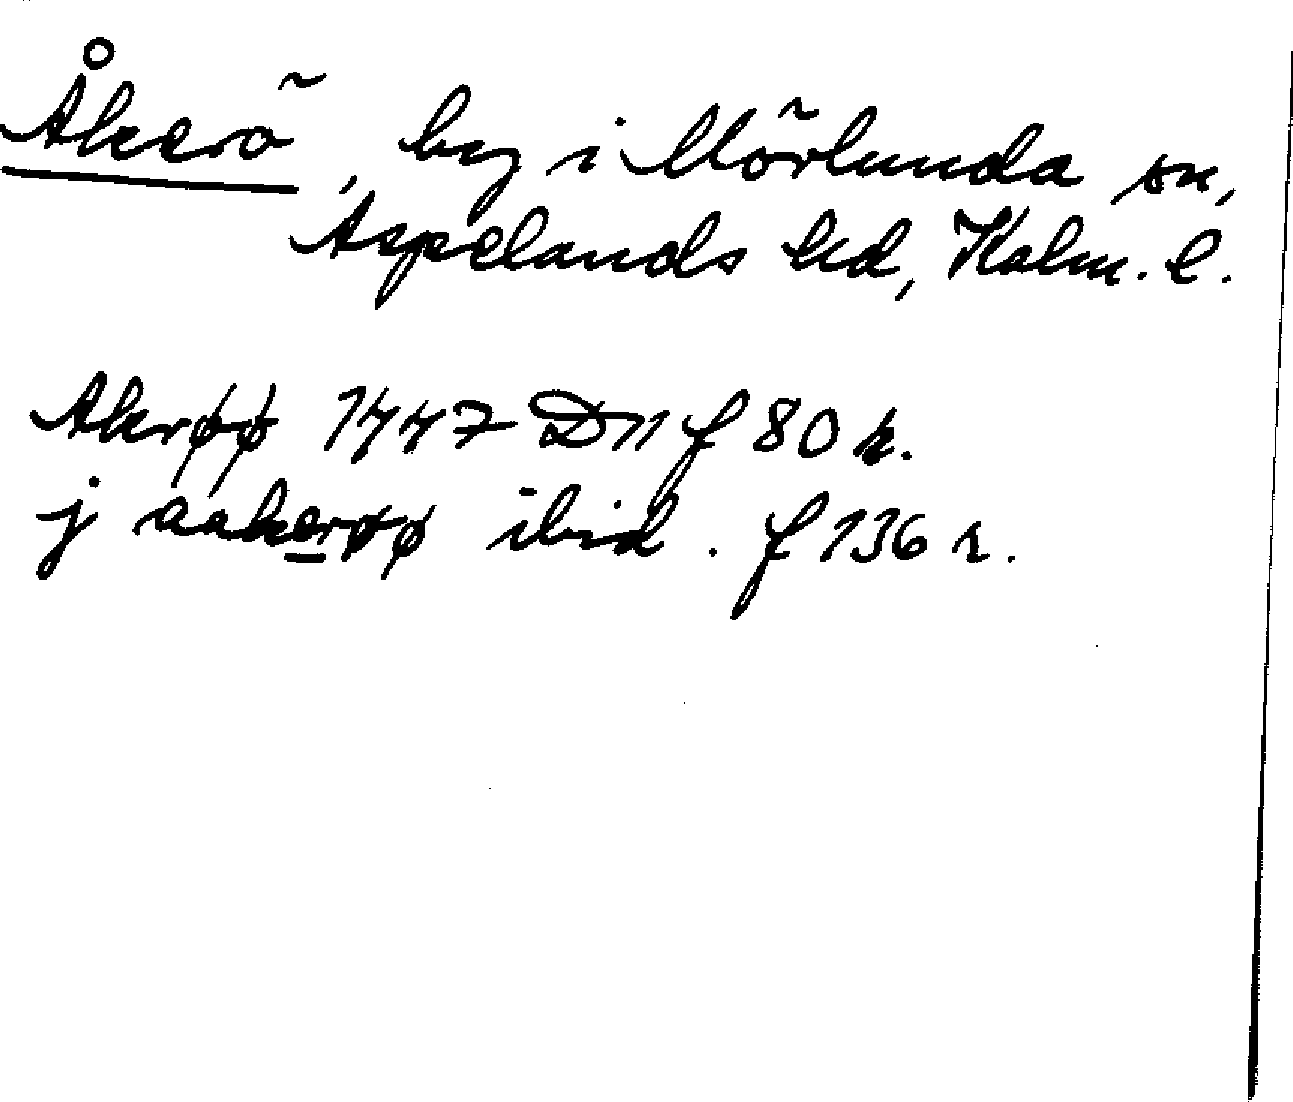 Åkerö, by i Mörlunda sn,
Aspelands hd, Kalm. l.
Akrøø 1447 D11 f 80 r.
j aakerøø ibid. f 136 r.